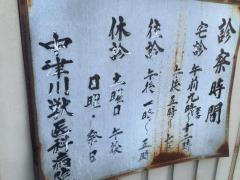 診察時間
宅診 午前九時〜十二時
午後五時〜七時
往診 午後一時〜五時
休診 土曜日午後
日曜・祭日
中津川獣医科病院